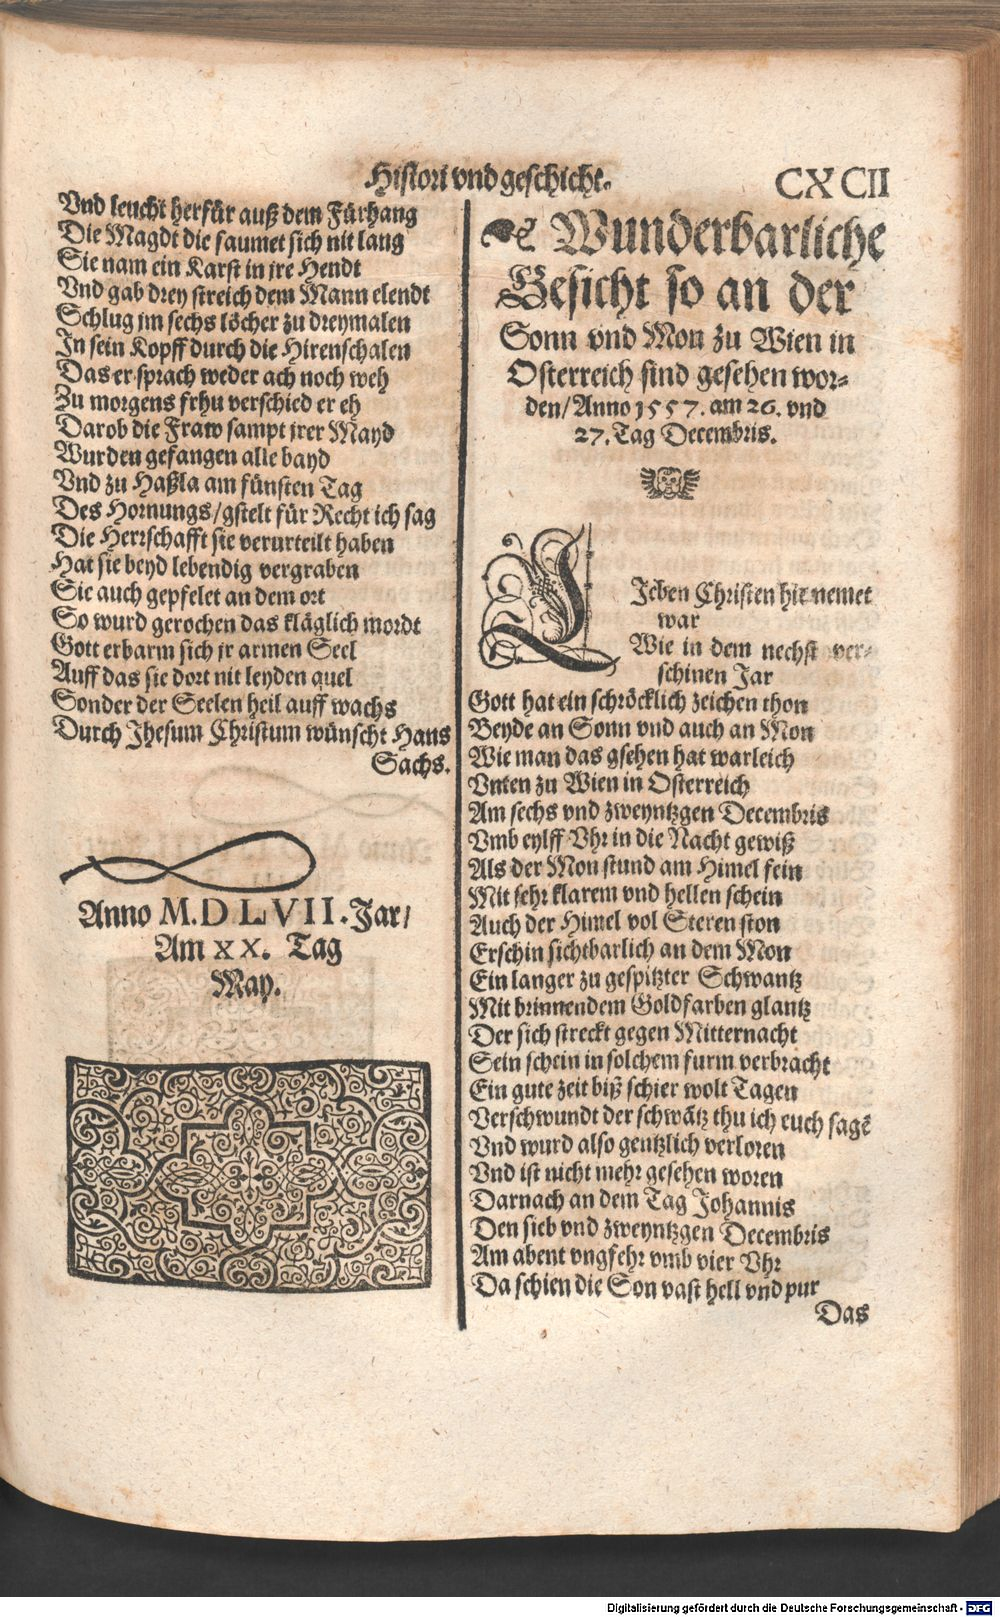 Histori vnd geschicht.
CXCII
Vnd leucht herfür auß dem Fürhang
Die Magdt die saumet sich nit lang
Sie nam ein Karst in jre Hendt
Vnd gab drey streich dem Mann elendt
Schlug jm sechs löcher zu dreymalen
In sein Kopff durch die Hirenschalen
Das er sprach weder ach noch weh
Zu morgens frhu verschied er eh
Darob die Fraw sampt jrer Mayd
Wurden gefangen alle bayd
Vnd zu Haßla am fünften Tag
Des Hornungs/gstelt für Recht ich sag
Die Herrschafft sie verurteilt haben
Hat sie beyd lebendig vergraben
Sie auch gepfelet an dem ort
So wurd gerochen das kläglich mordt
Gott erbarm sich jr armen Seel
Auff das sie dort nit leyden quel
Sonder der Seelen heil auff wachs
Durch Jhesum Christum wünscht Hans
Sachs.
Anno M.DLVII.Jar/
Am XX. Tag
May.
Wunderbarliche
Gesicht so an der
Sonn vnd Mon zu Wien in
Osterreich sind gesehen wor-
den/Anno 1557. am 26. vnd
27. Tag Decembris.
LJeben Christen hie nemet
war
Wie in dem nechst ver-
schinen Jar
Gott hat ein schröcklich zeichen thon
Beyde an Sonn vnd auch an Mon
Wie man das gsehen hat warleich
Vnten zu Wien in Osterreich
Am sechs vnd zweyntzgen Decembris
Vmb eylff Vhr in die Nacht gewiß
Als der Mon stund am Himel fein
Mit sehr klarem vnd hellen schein
Auch der Himel vol Steren ston
Erschin sichtbarlich an dem Mon
Ein langer zu gespitzter Schwantz
Mit brinnendem Goldfarben glantz
Der sich streckt gegen Mitternacht
Sein schein in solchem furm verbracht
Ein gute zeit biß schier wolt Tagen
Verschwundt der schwātz thu ich euch sagē
Vnd wurd also gentzlich verloren
Vnd ist nicht mehr gesehen woren
Darnach an dem Tag Johannis
Den sieb vnd zweyntzgen Decembris
Am abent vngfehr vmb vier Vhr
Da schien die Son vast hell vnd pur
Das
Digitalisierung gefördert durch die Deutsche Forschungsgemeinschaft - DFG